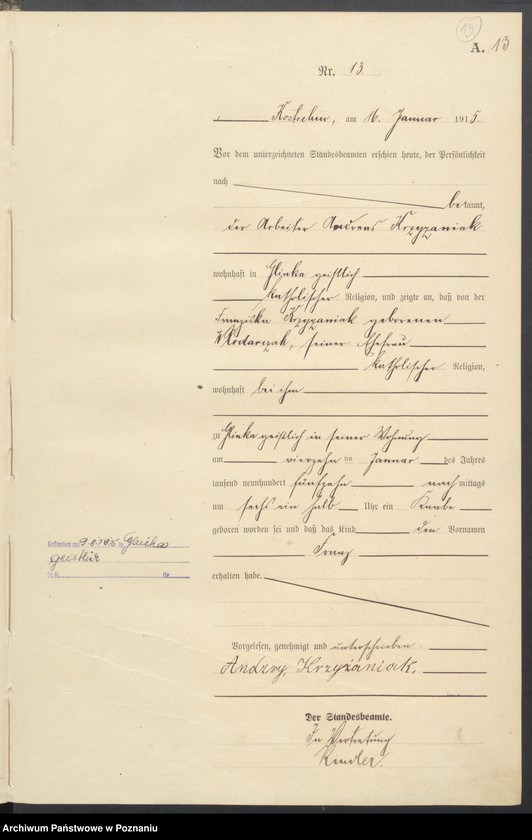 13
A. 13
Nr. 13
Kostschin, am 16. Januar 1915.
Vor dem unterzeichneten Standesbeamten erschien heute, der Persönlichkeit
nach
bekannt,
der Arbeiter Andreas Krzyzaniak
wohnhaft in Glinka geistlich
katholischer Religion, und zeigte an, daß von der
Franziska Krzyzaniak geborenen
Wlodarczak, seiner Ehefrau
katholischer Religion,
wohnhaft bei ihm
zu Glinka geistlich in seiner Wohnung
am vierzehnten Januar des Jahres
tausend neunhundert fünfzehn nachmittags
um sechs ein halb Uhr ein Knabe
geboren worden sei und daß das Kind den Vornamen
Franz
Gestorben am in Glinka
erhalten habe.
St.A. Nr.
Vorgelesen, genehmigt und unterschrieben
Andrzy. Krzyżaniak.
Der Standesbeamte.
In Vertretung
Kinder.
Archiwum Państwowe w Poznaniu